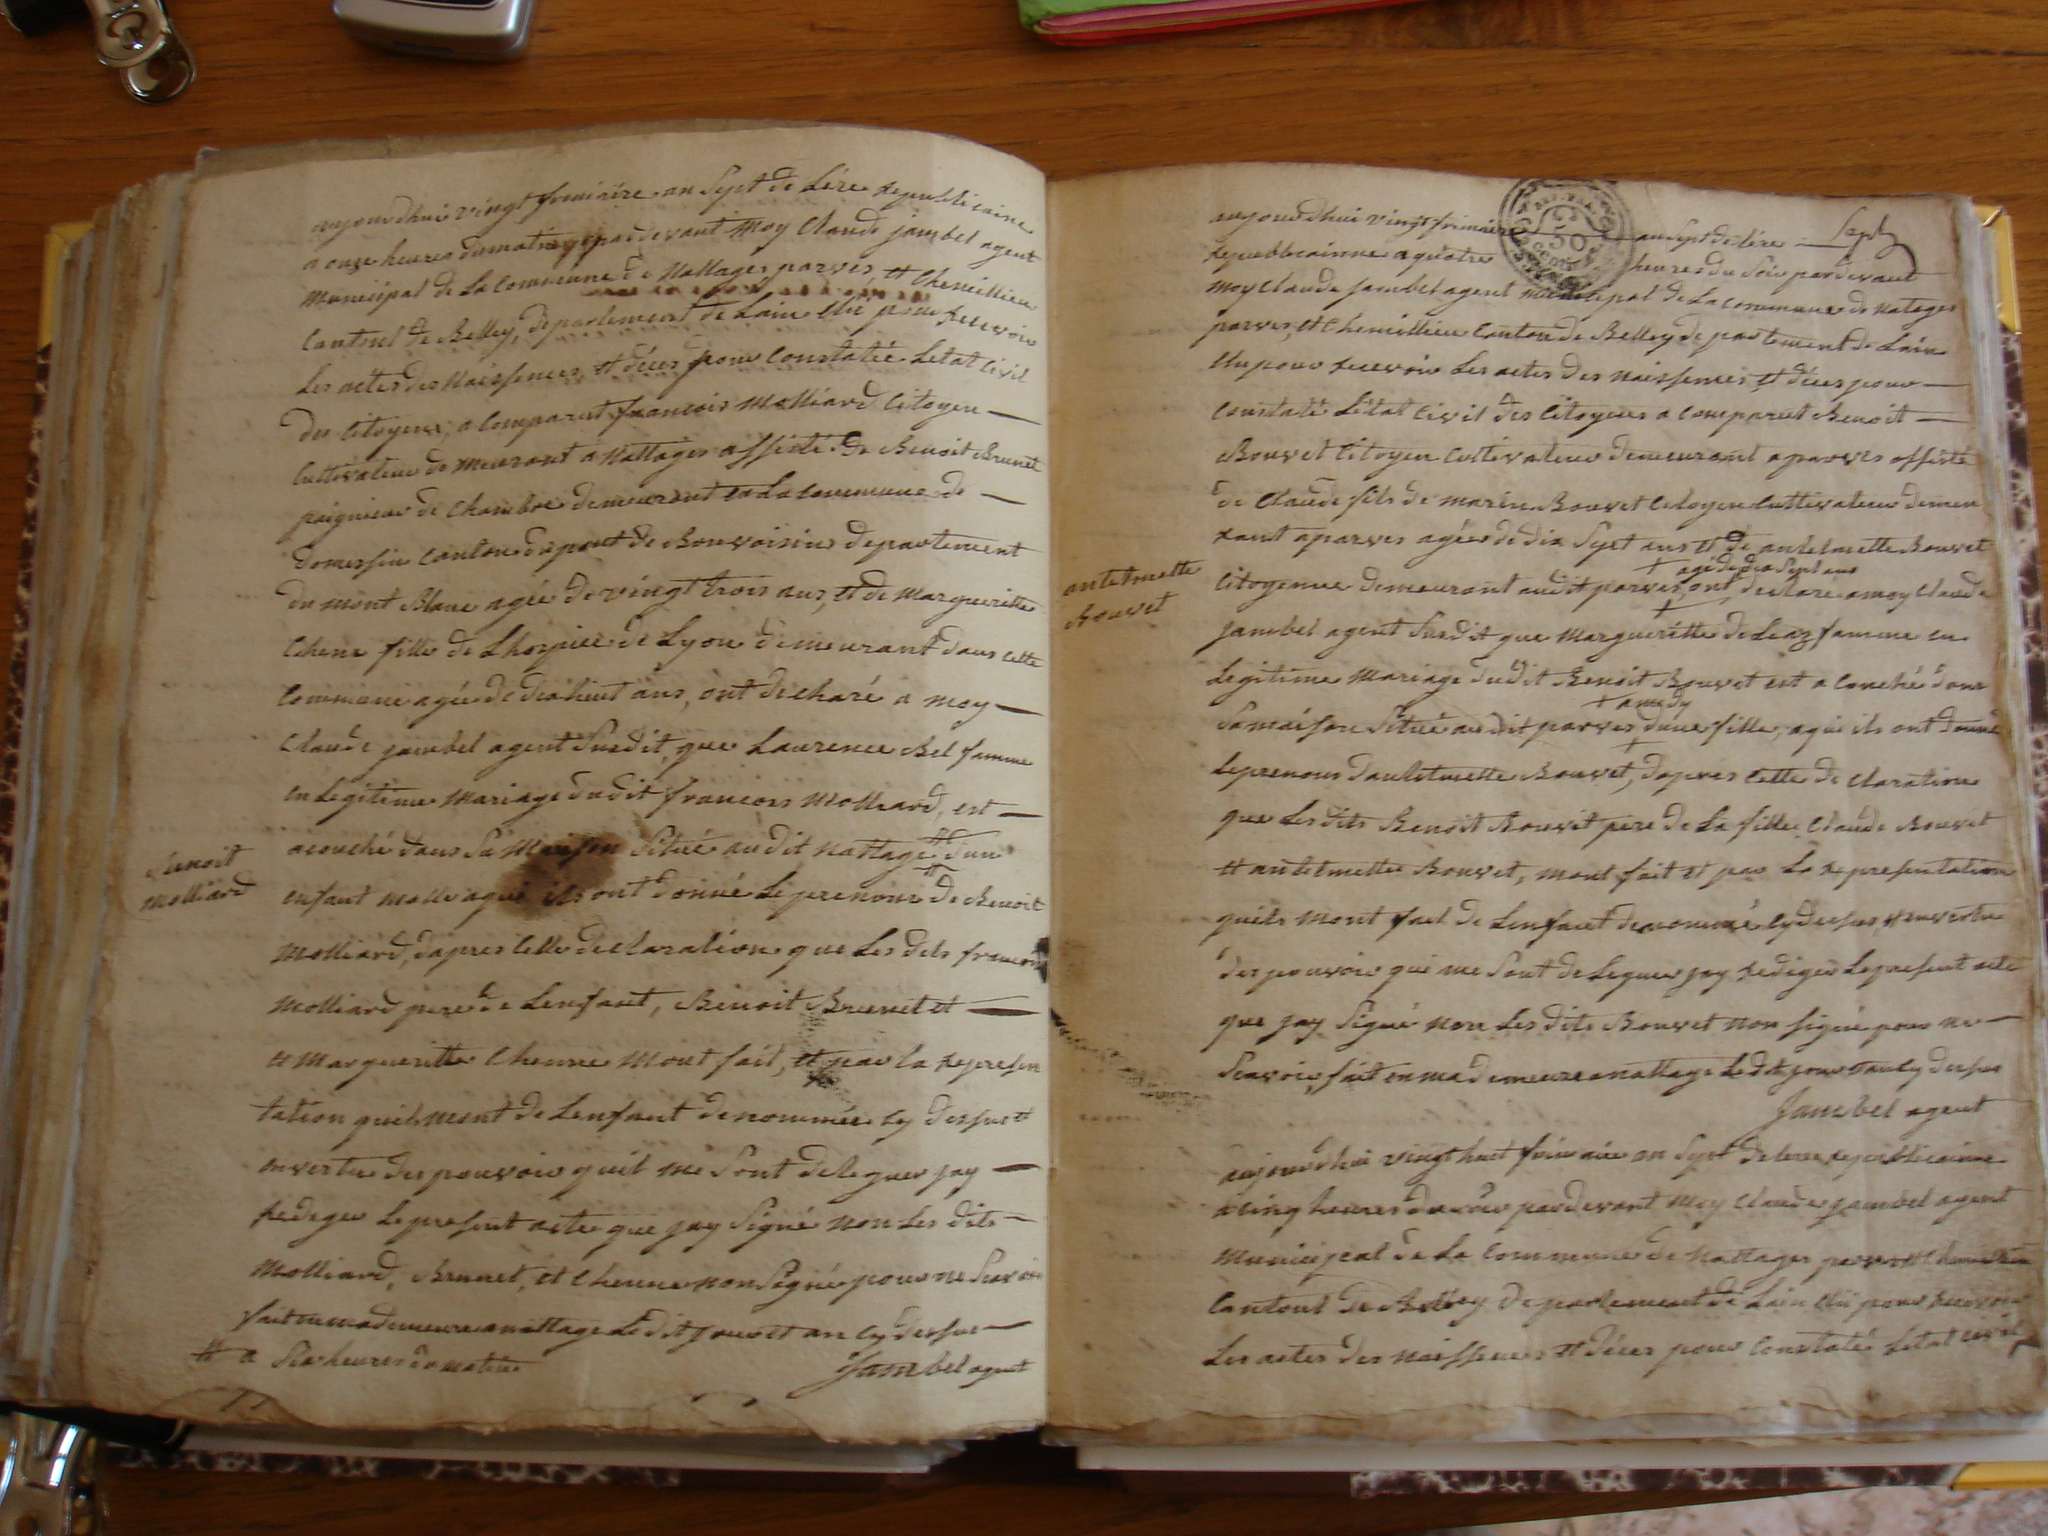 aujourdhui vingt frimaire an Sept de Lére republicaine
a onze heures du matin pardevant Moy Claude jambel agent
municipal de La Commune de Nattages parves et Chemillieu
Cantont de Belley, departement de Lain Elu pour recevoir
Les actes des Naissences, et déces pour Constatée Letat Civil
des Citoyens, a Comparut francois Molliard Citoyen
Cultivateur demeurant a Nattages assisté de Benoit Brunet
peigneur de Chambre demeurant en La Commune de
domessin Canton du pont de Bonvoisin departement
du Mont Blanc agée de vingt trois ans, et de Marguerite
Chene fille de Lhospice de Lyon demeurant dans cette
Commune agée de dix huit ans, ont decharé a moy
Claude jambel agent Susdit, que Laurence Bel famme
en Legitime Mariage dudit francois Molliard, est
acouché dans Sa Maison Situé audit Nattage # dun
Benoit
Molliard
enfant malle aqui ils ont donné Le prenom de Benoit
Molliard, dapres Cette declaration que Les dits francois
Molliard pere de Lenfant, Benoit Brunet et
et Marguerite Chenne Mont fait, et par la represen
tation quils mont de Lenfant denommée Cy dessus et
en vertu des pouvoir quil me Sont deleguer jay
rediger Le present acte que jay Signé non Les dits
Molliard, Brunet, et Chenne non Signé pour ne Scavoir
fait en ma demeure a nattage Le dit jour et an Cy dessus
# a Six heures du matin
Jambel agent
aujourdhui vingt frimaire an Sept de Lére Sept
republicainne a quatre heures du Soir pardevant
moy Claude jambel agent municipal de La Commune de Natages
parves, et Chemillieu Canton de Belley departement de Lain
Elu pour recevoir Les actes des Naissences, et déces pour
Constaté Létat Civil des Citoyens a Comparut Benoit
Bouvet Citoyen Cultivateur demeurant a parves assisté
de Claude fils de marin Bouvet Citoyen Cultivateur demeu
rant a parves agée de dix Sept ans et de antelmette Bouvet
+ agé de dix Sept ans
antelmette
Bouvet
Citoyenne demeurant audit parves ont declare a moy Claude
jambel agent Susdit que Marguerite de Leaz famme en
Legitime Mariage dudit Benoit Bouvet est a Couché dans
+ a midy
Sa maison Situé audit parves dune fille, aqui ils ont donné
Le prenom dantelmette Bouvet, dapres Cette declaration
que Les dits Benoit Bouvet pere de La fille, Claude Bouvet
et antelmette Bouvet, mont fait et par La representation
quils mont fait de Lenfant denommé Cy dessus en vertu
des pouvoir qui me Sont deleguer jay rediger Le present acte
que jay Signé non Les dits Bouvet non signé pour ne
Scavoir, fait en ma demeure a nattage Le dit jour et an Cy dessus
Jambel agent
aujourdhui vingt huit frimaire an Sept de Lere republicaine
a Cinq heures du Soir pardevant Moy Claude jambel agent
municipal de La Commune de Nattages parves et Chemillieu
Cantont de Belley departement de Lain Elu pour recevoir
Les actes des naissences et déces pour Constaté Letat Civil